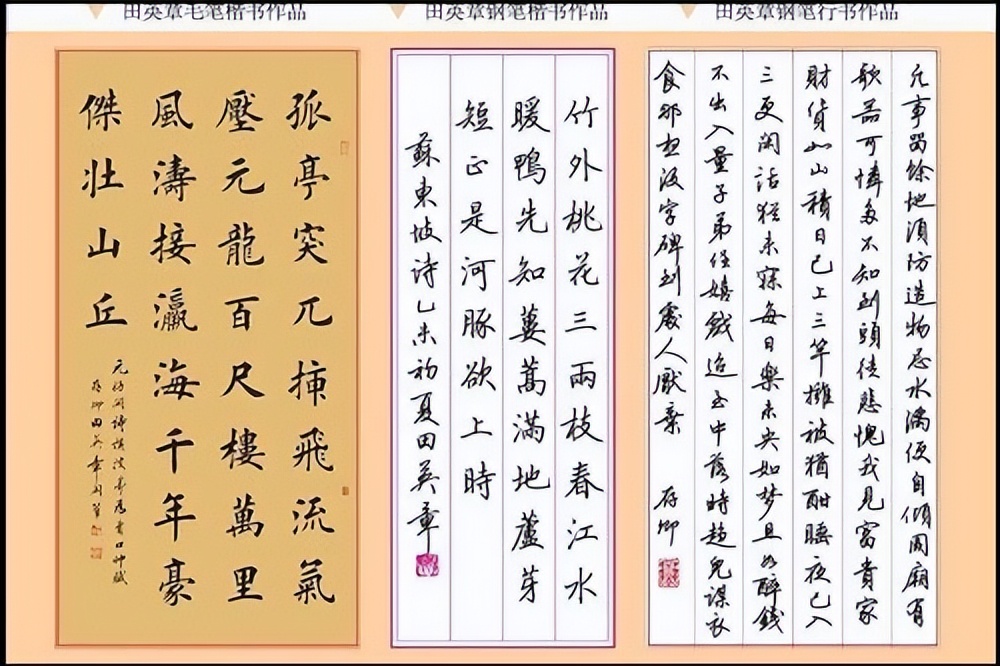 田英章毛笔楷书作品
田英章钢笔楷书作品
田英章钢笔行书作品
孤亭突兀插飛流氣
壓元龍百尺樓萬里
風濤接瀛海千年豪
傑壯山丘
元好問詩橫波亭為青口帥賦
存卿田英章
竹外桃花三兩枝春江水
暖鴨先知蔞蒿滿地蘆芽
短正是河豚欲上時
蘇東坡詩乙未初夏田英章
凡事留餘地須防造物忌水滿便自傾周廟有
欹器可憐多不知到頭徒悲愧我見富貴家
財貨如山積日已上三竿擁被猶酣睡夜已入
三更閑話猶未寐每日樂未央如梦且如醉錢
不出入量子弟任嬉戲迨至中落時謀衣
食那想沒字碑到處人厭棄 存卿